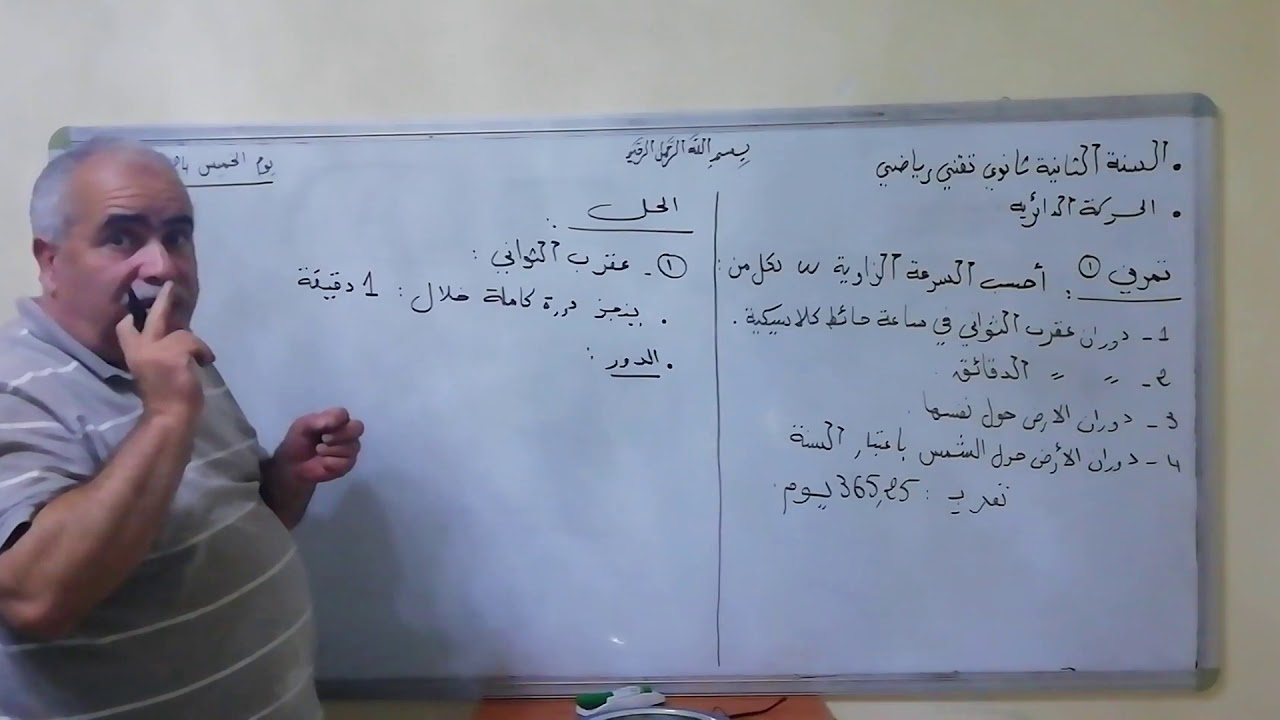 بسم الله الرحمن الرحيم
يوم الخميس
• السنة الثانية ثانوي تقني رياضي
• الحركة الدائرية
تمرين ① : أحسب السرعة الزاوية ω لكل من :
1- دوران عقرب الثواني في ساعة حائط كلاسيكية .
2- " " الدقائق .
3- دوران الارض حول نفسها .
4- دوران الأرض حول الشمس باعتبار السنة
تقريب : 365,25 يوم .
الحل :
①- عقرب الثواني :
• ينجز دورة كاملة خلال : 1 دقيقة
• الدور :